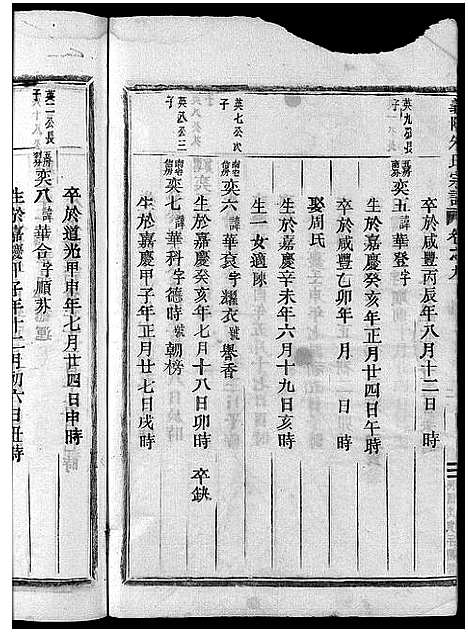 朱氏宗譜 卷之九
卒於咸豐丙辰年八月十二日 時
英九公長子 奕五諱華登字
生於嘉慶癸亥年正月廿四日午時
卒於咸豐乙卯年 月 日 時
娶周氏
生於嘉慶辛未年六月十九日亥時
生一女適陳
英七公次子 奕六諱華袞字耀衣號譽香
生於嘉慶癸亥年七月十八日卯時 卒缺
英八公三子 奕七諱華科字德時號朝榜
生於嘉慶甲子年正月廿七日戌時
卒於道光甲申年七月廿四日申時
英二公長子 奕八諱華合字順蘇
生於嘉慶甲子年十二月初六日丑時